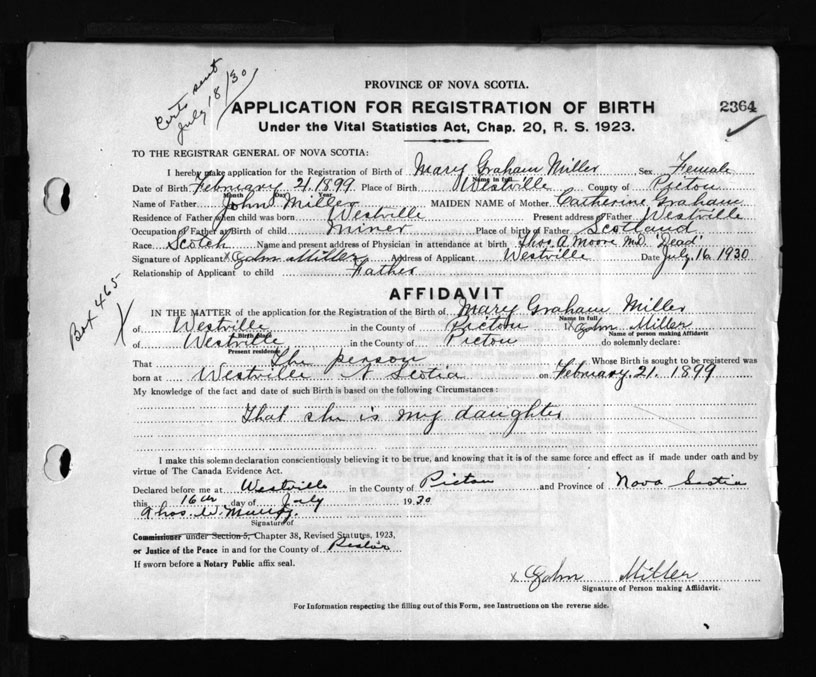 Certs sent
July 18/30
PROVINCE OF NOVA SCOTIA.
APPLICATION FOR REGISTRATION OF BIRTH
2364
Under the Vital Statistics Act, Chap. 20, R. S. 1923.
TO THE REGISTRAR GENERAL OF NOVA SCOTIA:
I hereby make application for the Registration of Birth of Mary Graham Miller Sex Female
Name in full
Date of Birth February 21, 1899 Place of Birth Westville County of Pictou
Month Day Year
Name of Father John Miller MAIDEN NAME of Mother Catherine Graham
Residence of Father when child was born Westville Present address of Father Westville
Occupation of Father at Birth of child miner Place of birth of Father Scotland
Race Scotch Name and present address of Physician in attendance at birth Thos. A Moore M.D. 'Dead'
Signature of Applicant x John Miller Address of Applicant Westville Date July 16, 1930
Relationship of Applicant to child Father
Box 465
AFFIDAVIT
IN THE MATTER of the application for the Registration of the Birth of Mary Graham Miller
Name in full
of Westville in the County of Pictou I x John Miller
Birth Place
Name of person making Affidavit
of Westville in the County of Pictou do solemnly declare:
Present residence
That The person Whose Birth is sought to be registered was
born at Westville N Scotia on February 21, 1899
My knowledge of the fact and date of such Birth is based on the following Circumstances:
That she is my daughter
I make this solemn declaration conscientiously believing it to be true, and knowing that it is of the same force and effect as if made under oath and by
virtue of The Canada Evidence Act.
Declared before me at Westville in the County of Pictou and Province of Nova Scotia
this 16th day of July 1930
Thos. W.
Signature of
Commissioner under Section 5, Chapter 38, Revised Statutes, 1923,
or Justice of the Peace in and for the County of Pictou
If sworn before a Notary Public affix seal.
x John Miller
Signature of Person making Affidavit.
For Information respecting the filling out of this Form, see Instructions on the reverse side.